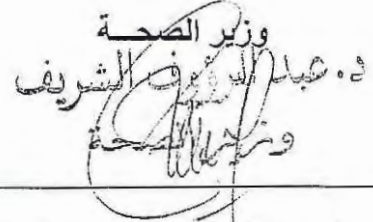 وزير الصحـــة
د. عبد الرؤوف الشريف
وزير الصحة